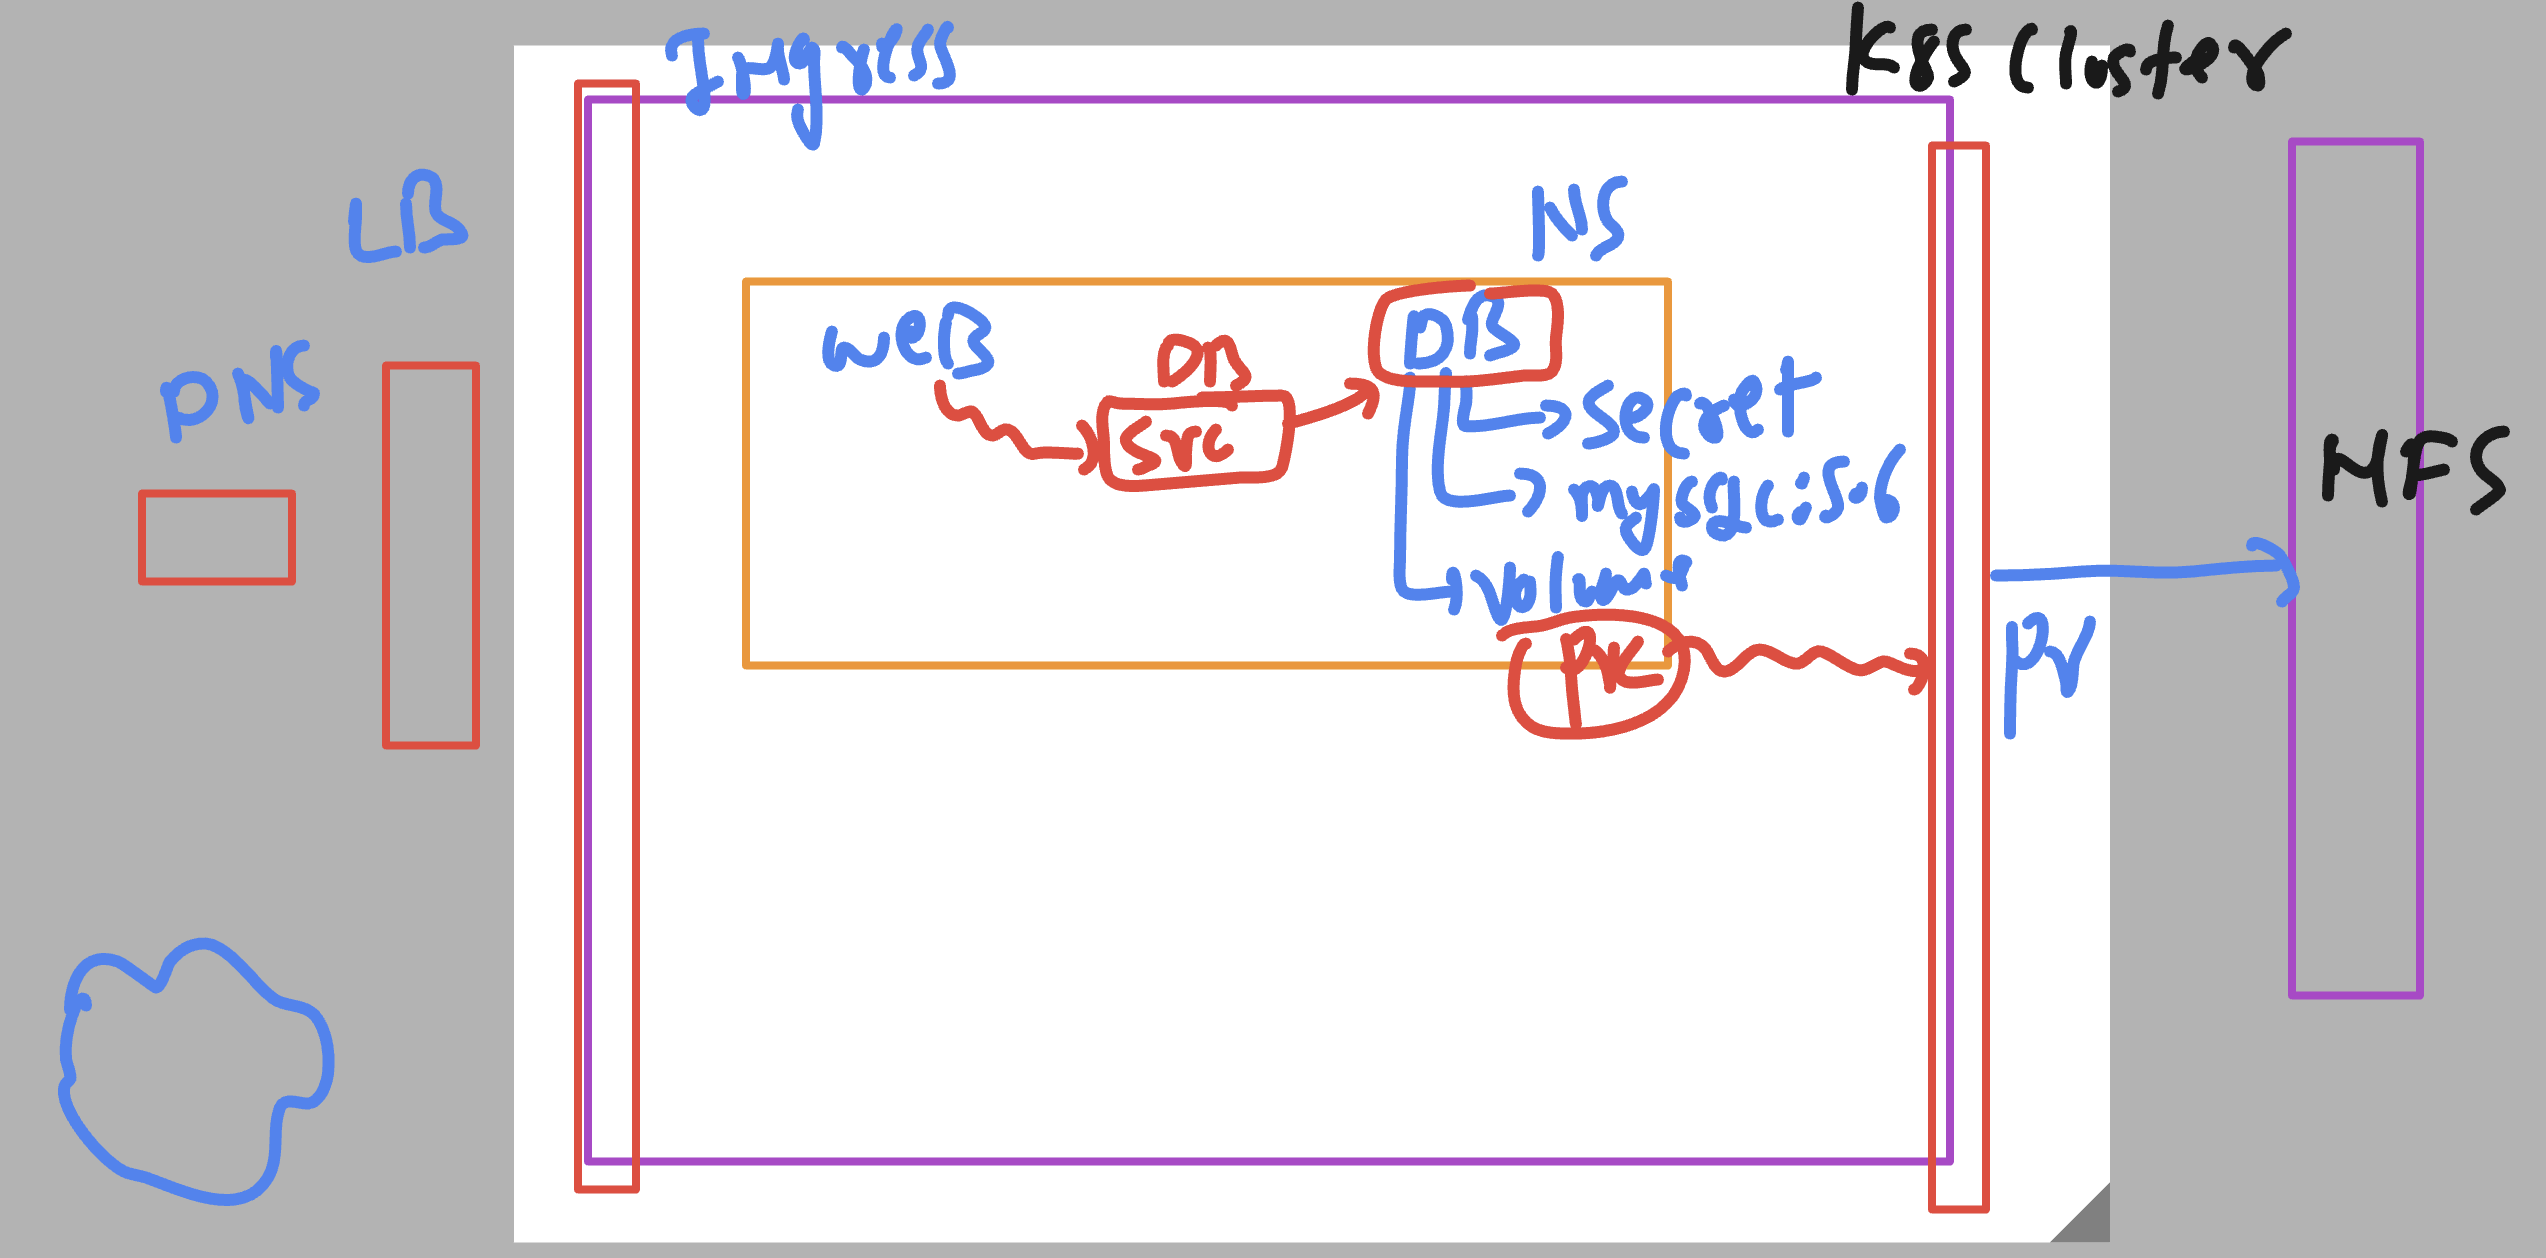 Ingress
K8S Cluster
LB
NS
DNS
WEB
DB
DB
src
secret
mysql:5.6
volume
PVC
NFS
PV